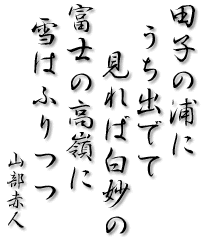 田子の浦に
うち出でて
見れば白妙の
富士の高嶺に
雪はふりつつ
山部赤人